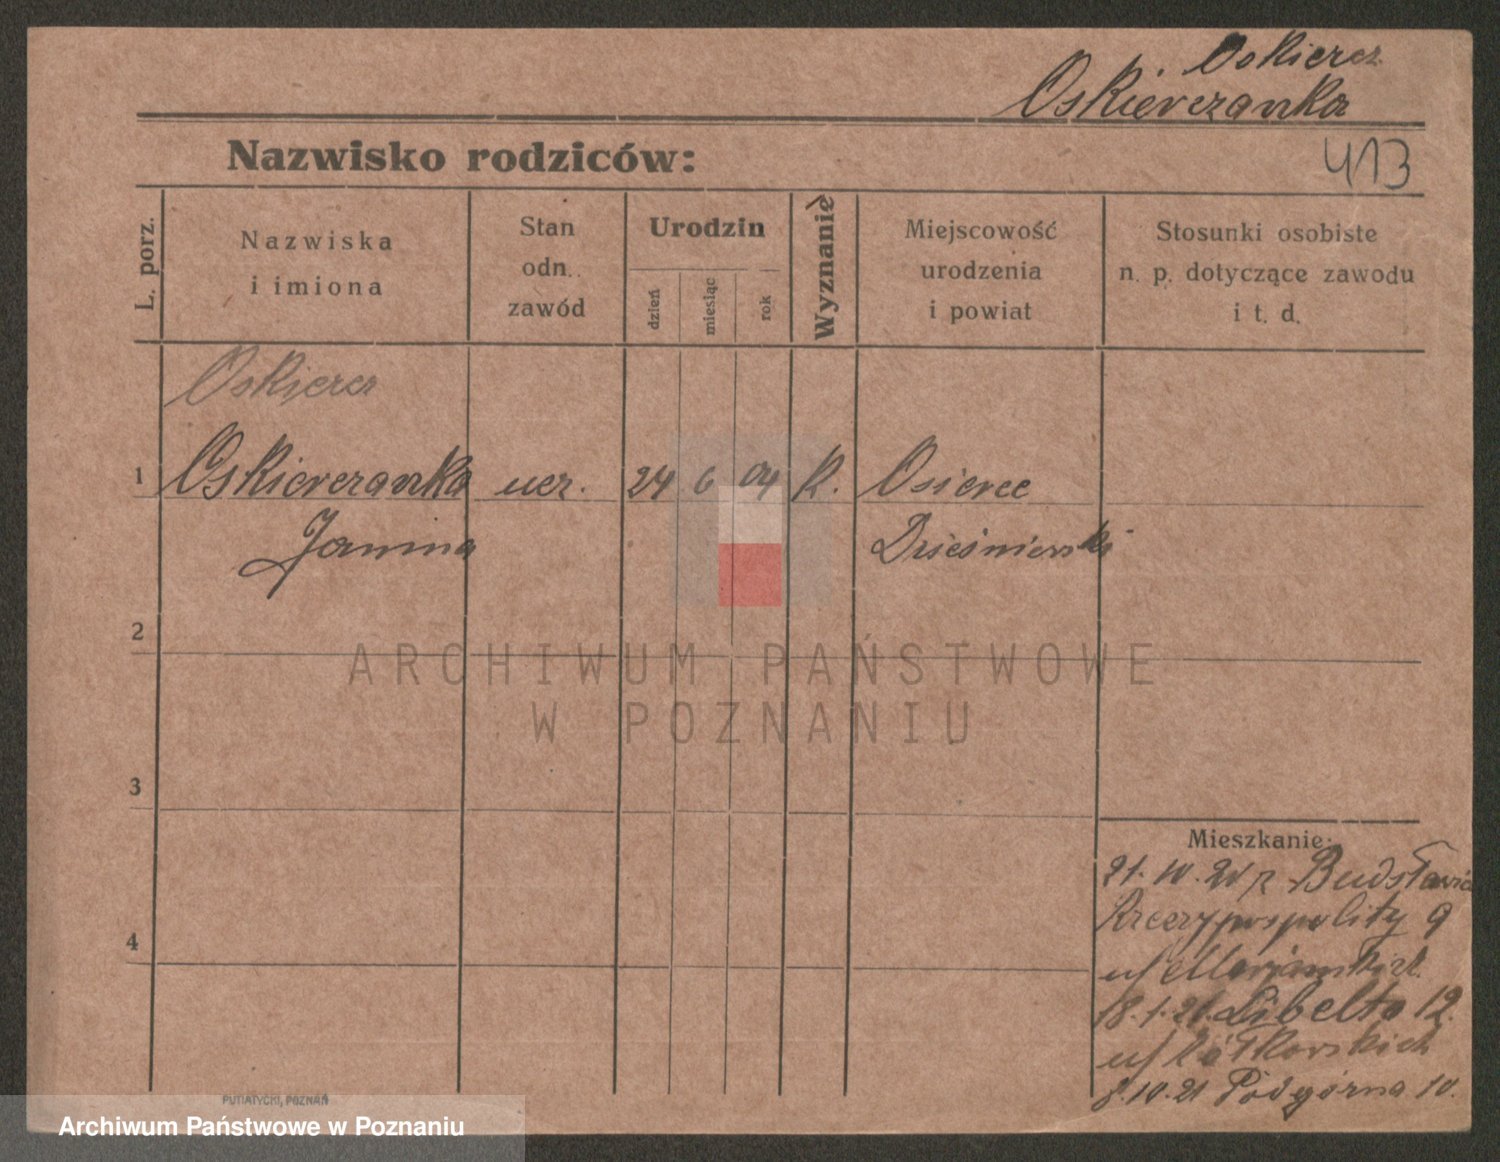 Oskiercz
Oskierczanka
Nazwisko rodziców:
413
L. porz.
Nazwiska
i imiona
Stan
odn.
zawód
Urodzin
dzień
miesiąc
rok
Wyznanie
Miejscowość
urodzenia
i powiat
Stosunki osobiste
n. p. dotyczące zawodu
i t. d.
Oskiercz
1 Oskierczanka ucz. 24 6 04 K. Osierce
Janina
2
3
4
Mieszkanie:
21.10.20 z
Rzeczypospolity 9
u/
18.1.21. Libelta 12.
u/
8.10.21 Podgórna 10.
PUTIATYCKI, POZNAŃ
ARCHIWUM PAŃSTWOWE
W POZNANIU
Archiwum Państwowe w Poznaniu